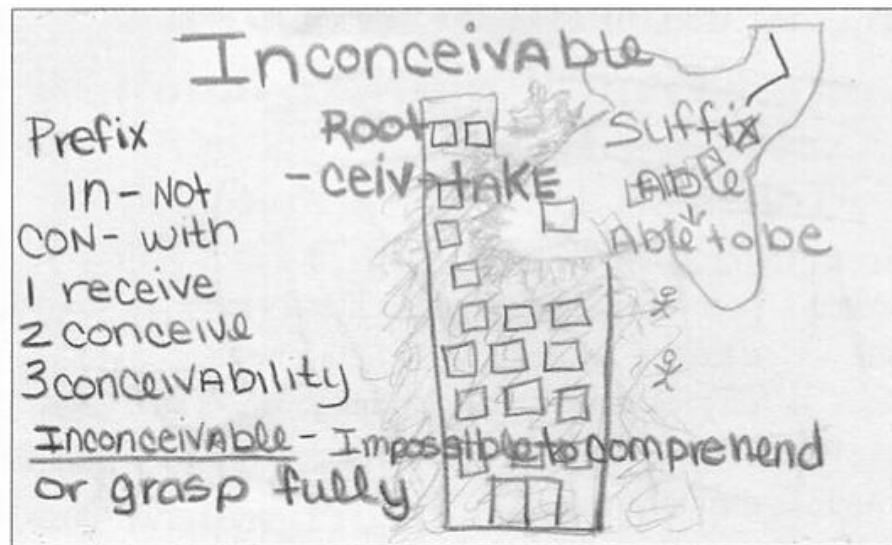 InconceivAble
Prefix
In - Not
CON - with
1 receive
2 conceive
3 conceivAbility
Root
- ceiv → tAKE
Suffix
Able
↓
Able to be
InconceivAble - Impossible to comprehend
or grasp fully